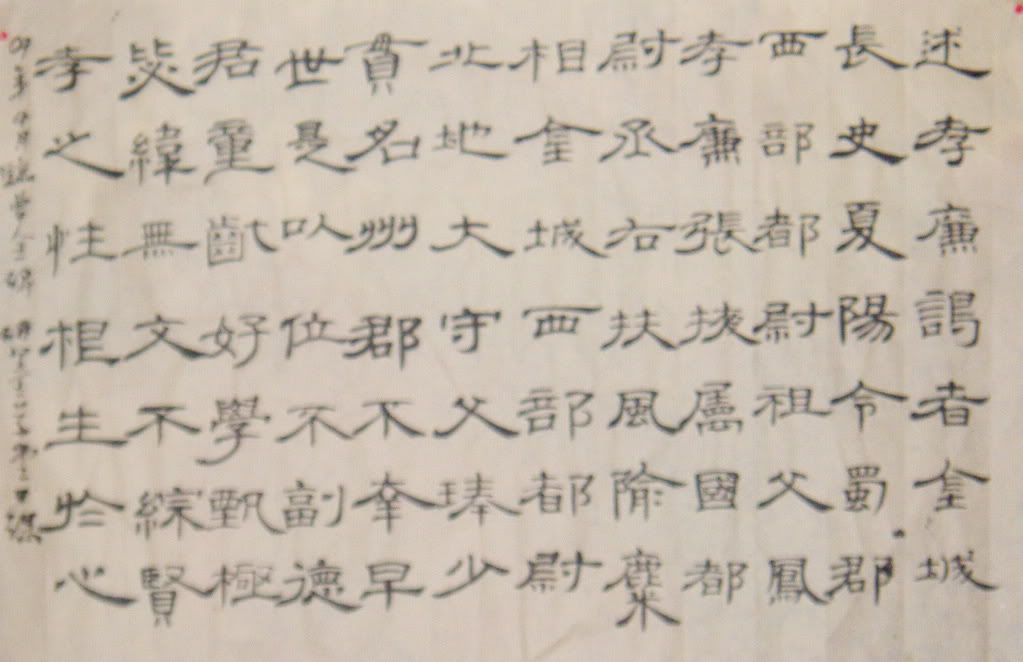 述孝廉謁者金城
長史夏陽令蜀郡
西部都尉祖父鳳
孝廉張掖屬國都
尉丞右扶風隃糜
相金城西部都尉
北地大守父琫少
貫名州郡不幸早
世是以位不副德
君童齔好學甄極
毖緯無文不綜賢
孝之性根生於心
臨曹全碑